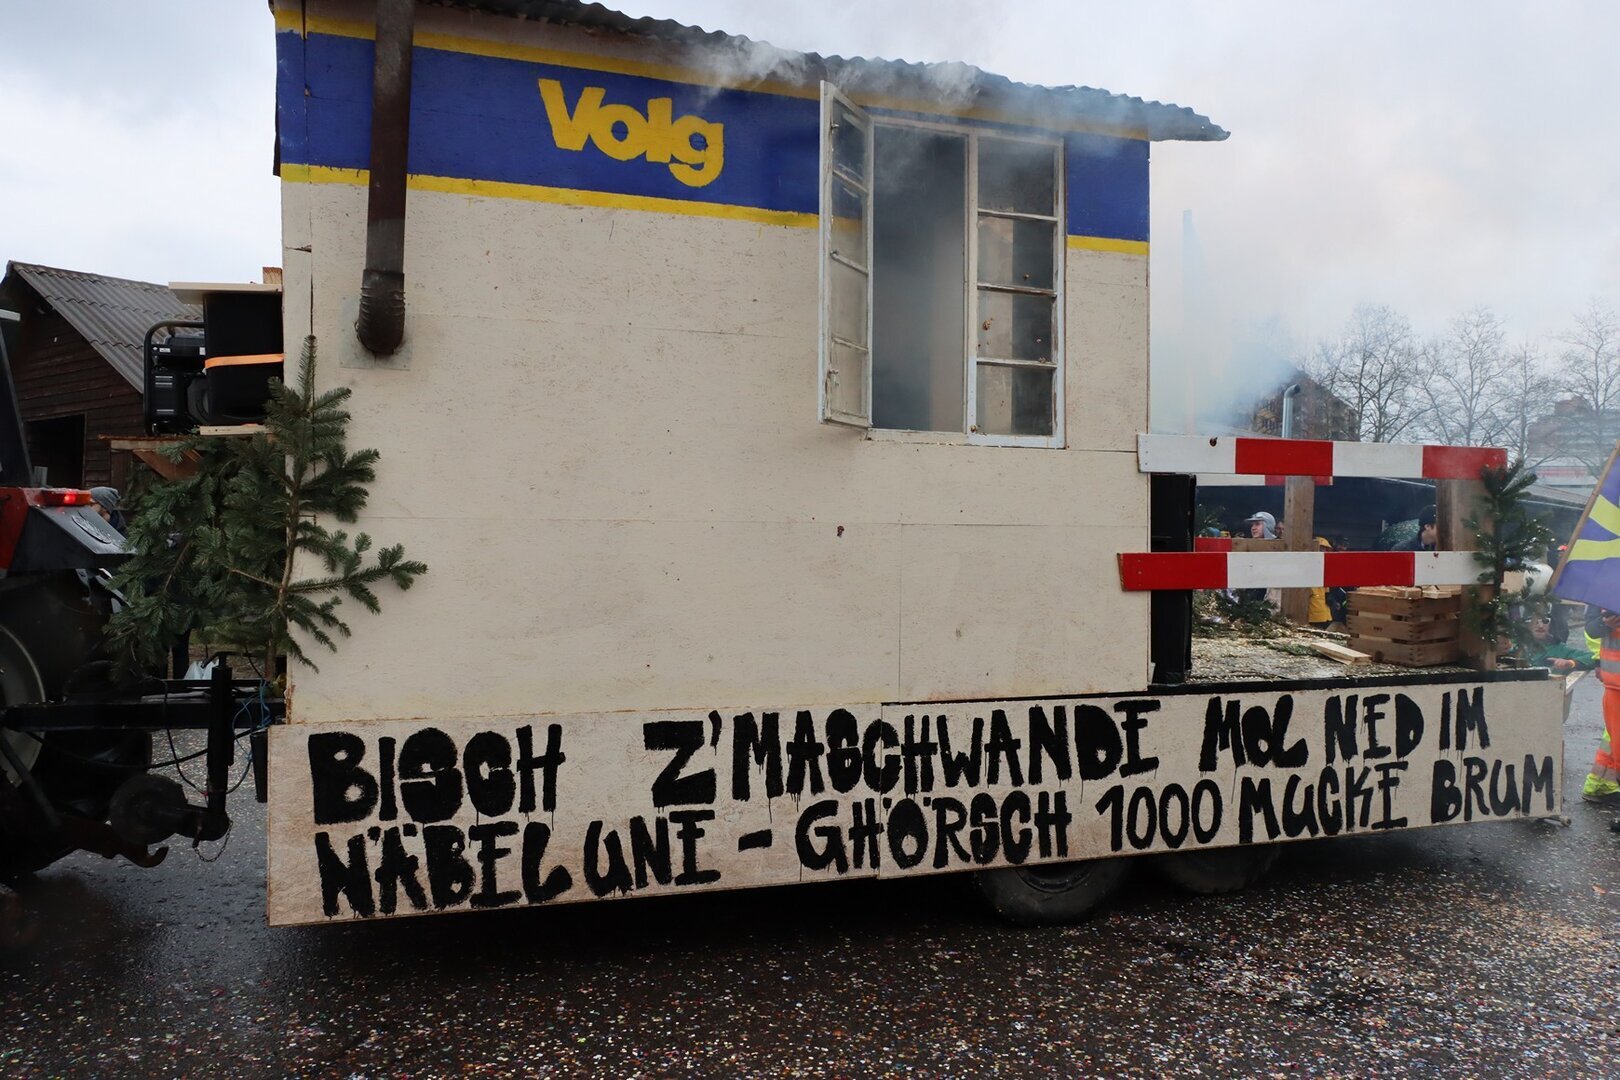 Volg
BISCH Z'MASCHWANDE MOL NED IM
NÄBEL UNE - GHÖRSCH 1000 MUCKE BRUM